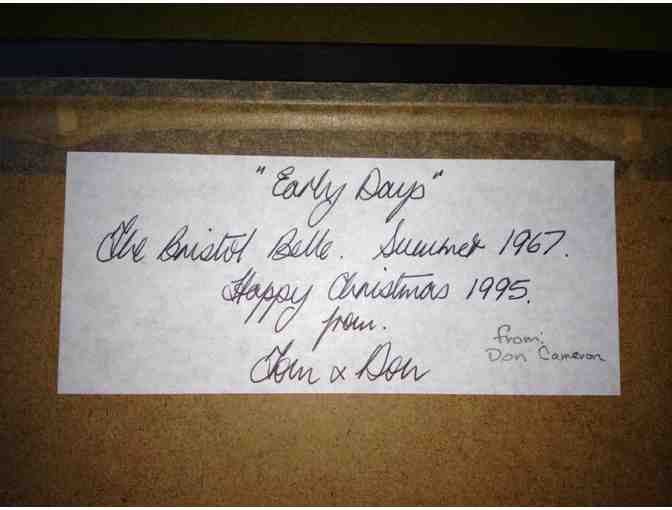 "Early Days"
The Bristol Belle. Summer 1967.
Happy Christmas 1995.
from.
Tom & Don
from:
Don Cameron